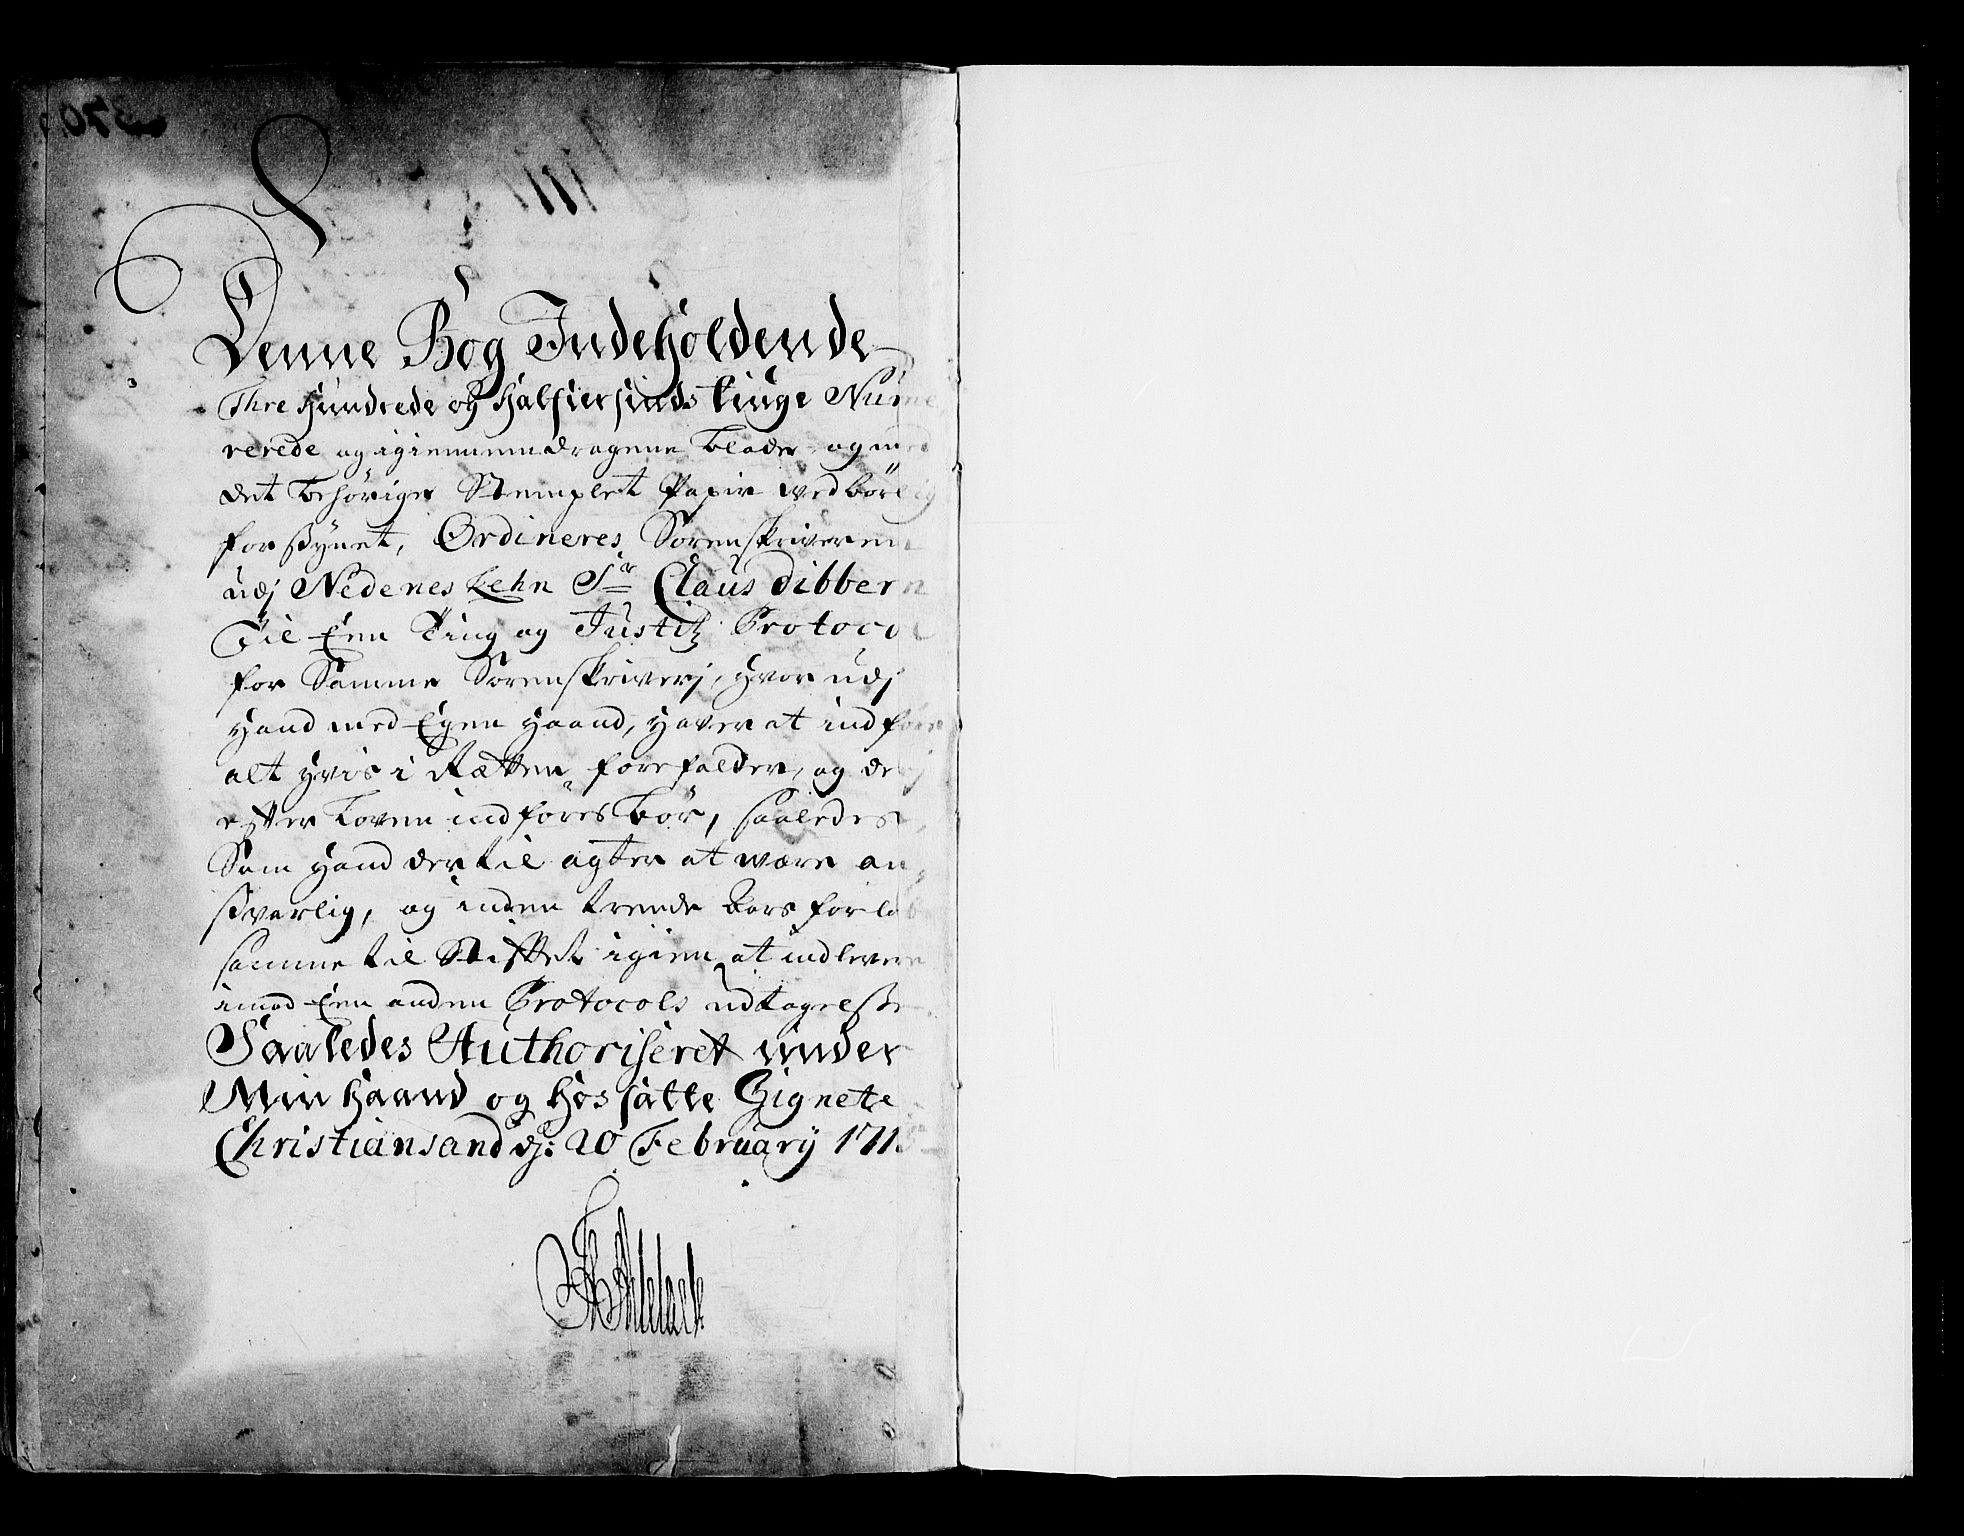 Denne Bog Indeholdende
Thre hundrede og halfiersinds tiuge Nume
rerede og igiennemdragene blade, og med
det behörige Stemplet Papir vedbörlig
forsÿnet, Ordineres Sorenskriveren
udj Nedenes Lehn Sr Claus Dibbern
Til Een Ting og Justitz Protocol
for Samme Sorenskriverj, hvor udj
hand med Egen haand, haver at indföre
alt hvis i Rætten forefalder, og derj
efter Loven indföres bör, saaledes
Som hand dertil agter at være an,
svarlig, og inden trende Aars forlöb
samme til Stiftet igien at indlevere
imod Een anden Protocols udtagelse
Saaledes Authoriseret under
Min haand og hossatte Signete
Christiansand dj: 20 Februarÿ 171